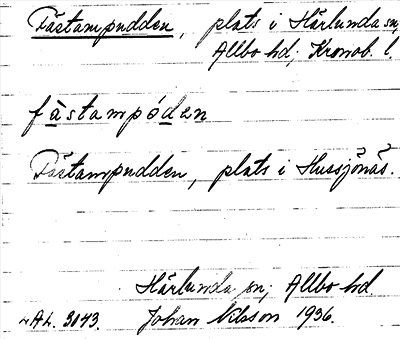 Fästampudden, plats i Härlunda sn,
Allbo hd; Kronob. l.
fàstampóden
Fästampudden, plats i Hussjönäs.
Härlunda sn; Allbo hd
LAL. 3043. Johan Nilsson 1936.